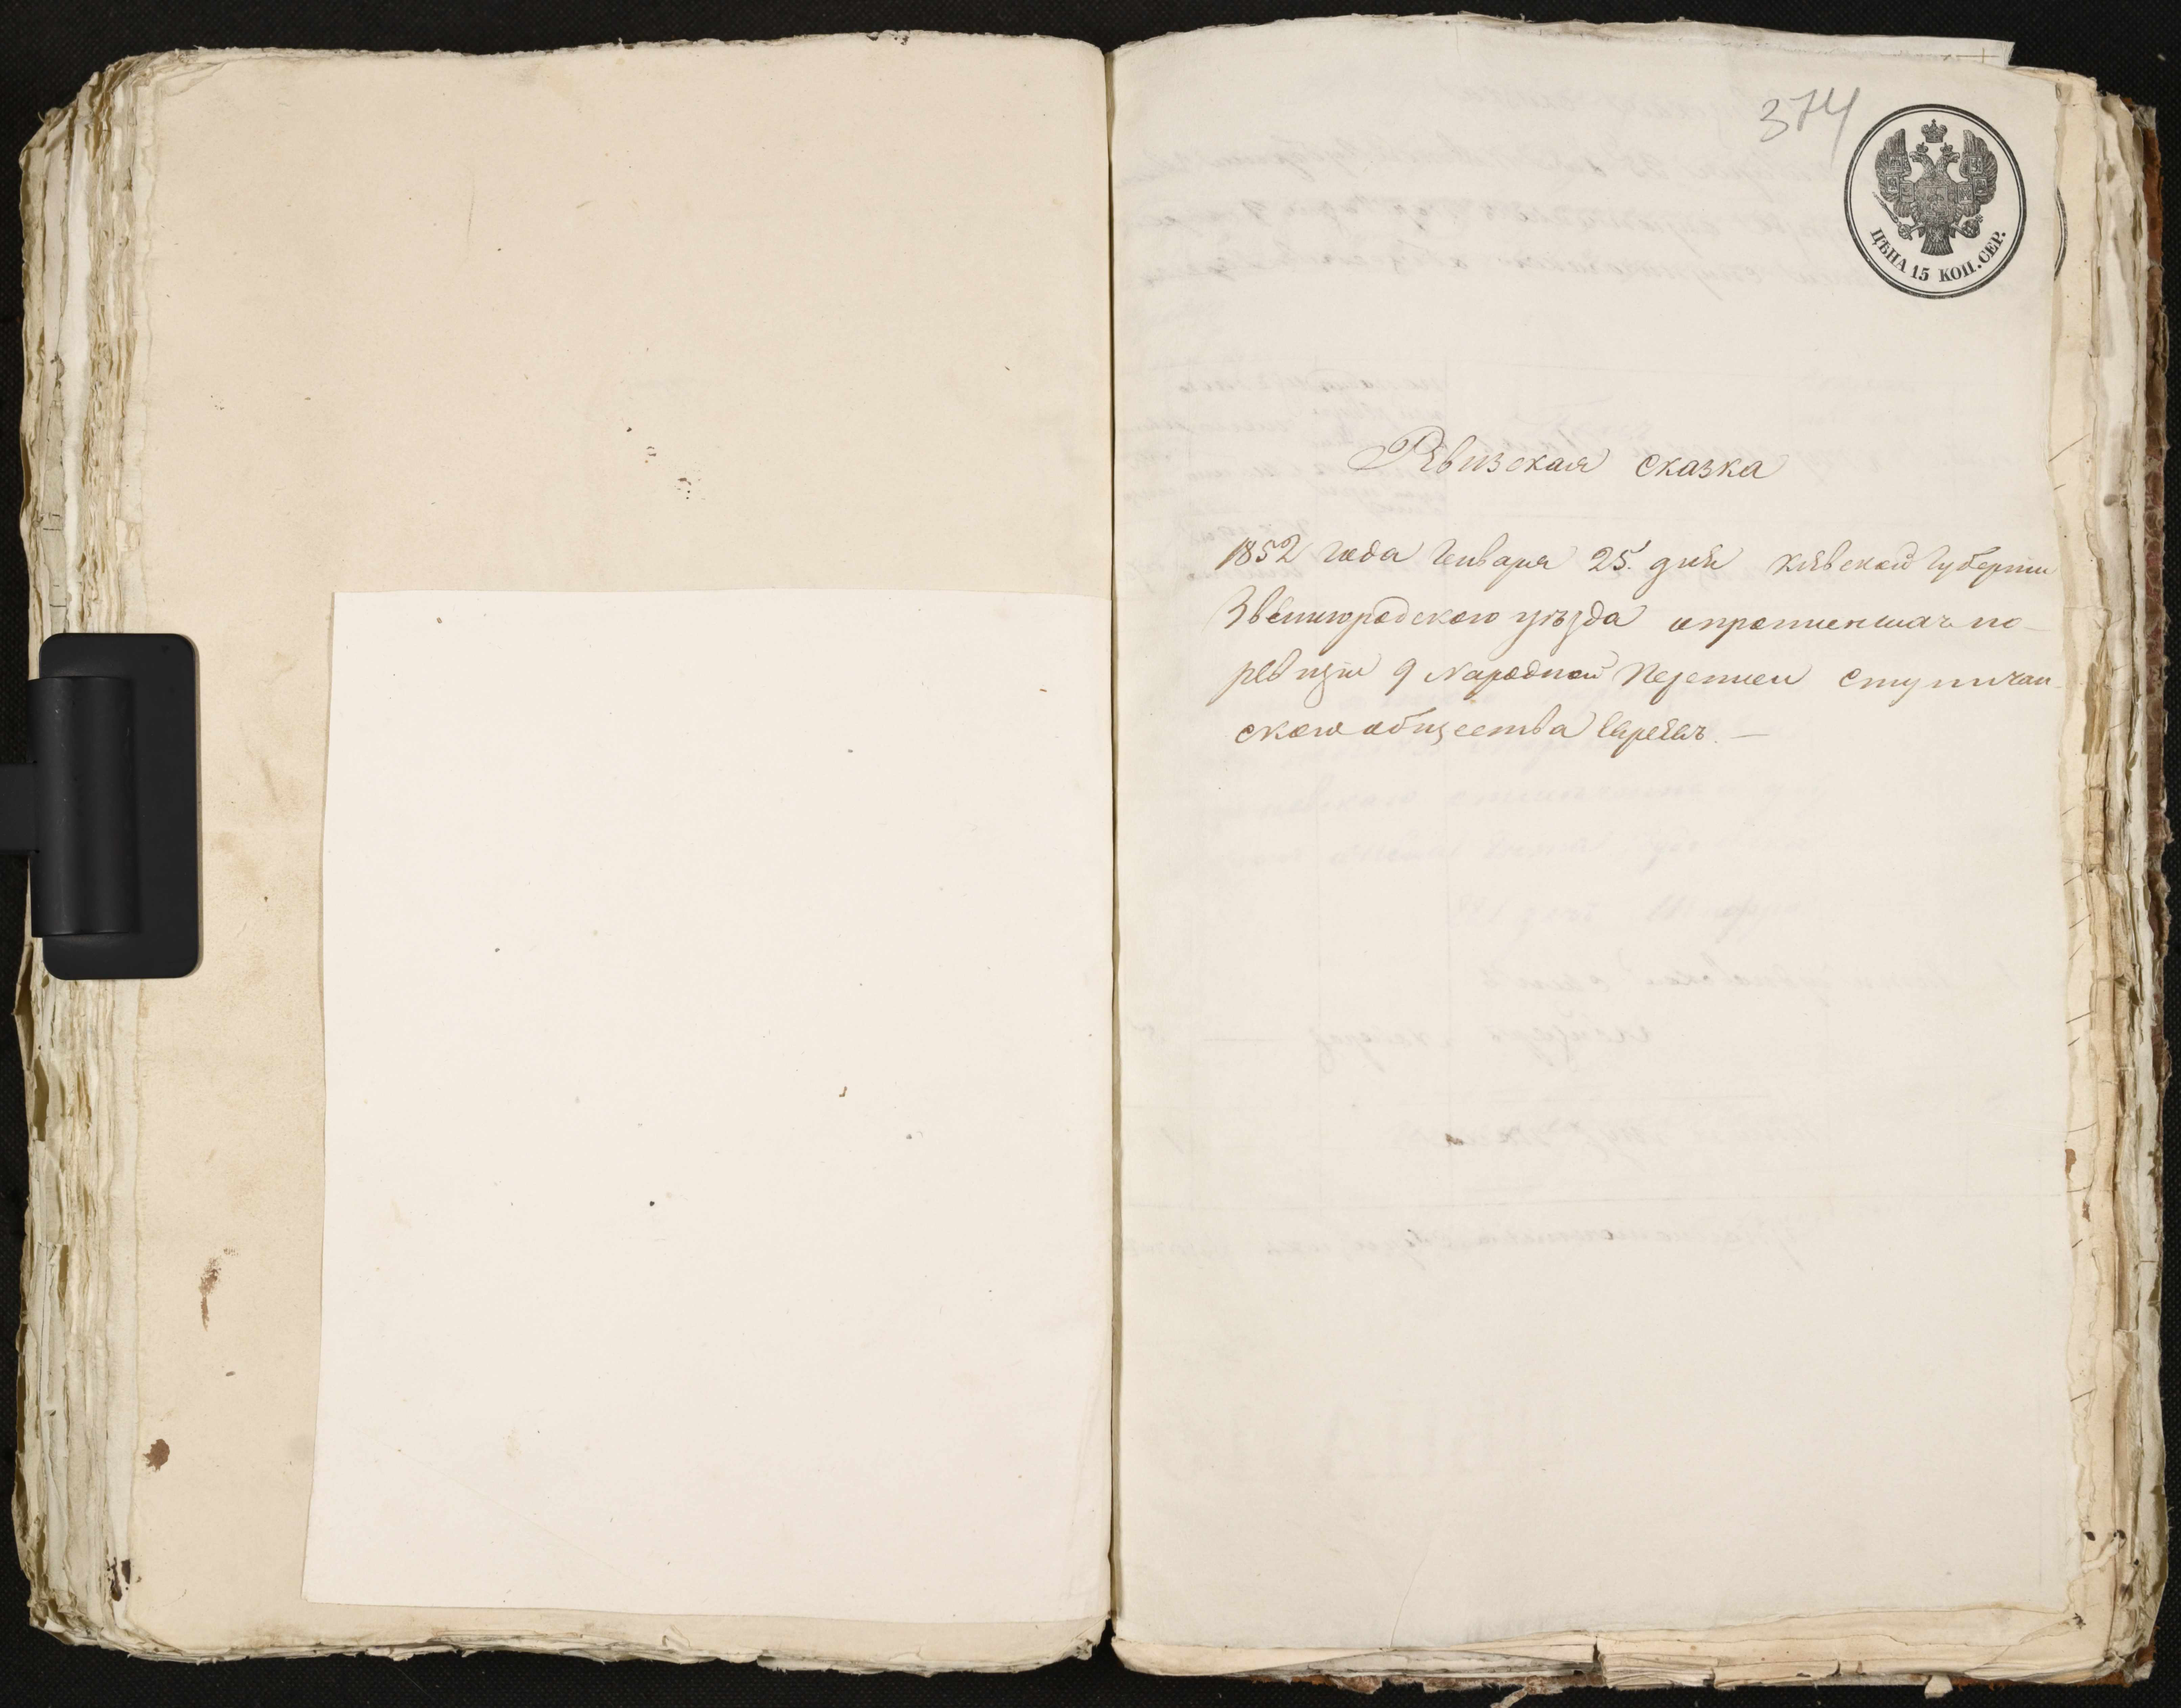 374
ЦѢНА 15 КОП. СЕР.
Ревизская сказка
1852 года Генваря 25. дня Кіевской Губерніи
Звенигородского уѣзда о пропискахъ по
ревизіи 9 Народной Переписи
ского общества Евреевъ. —